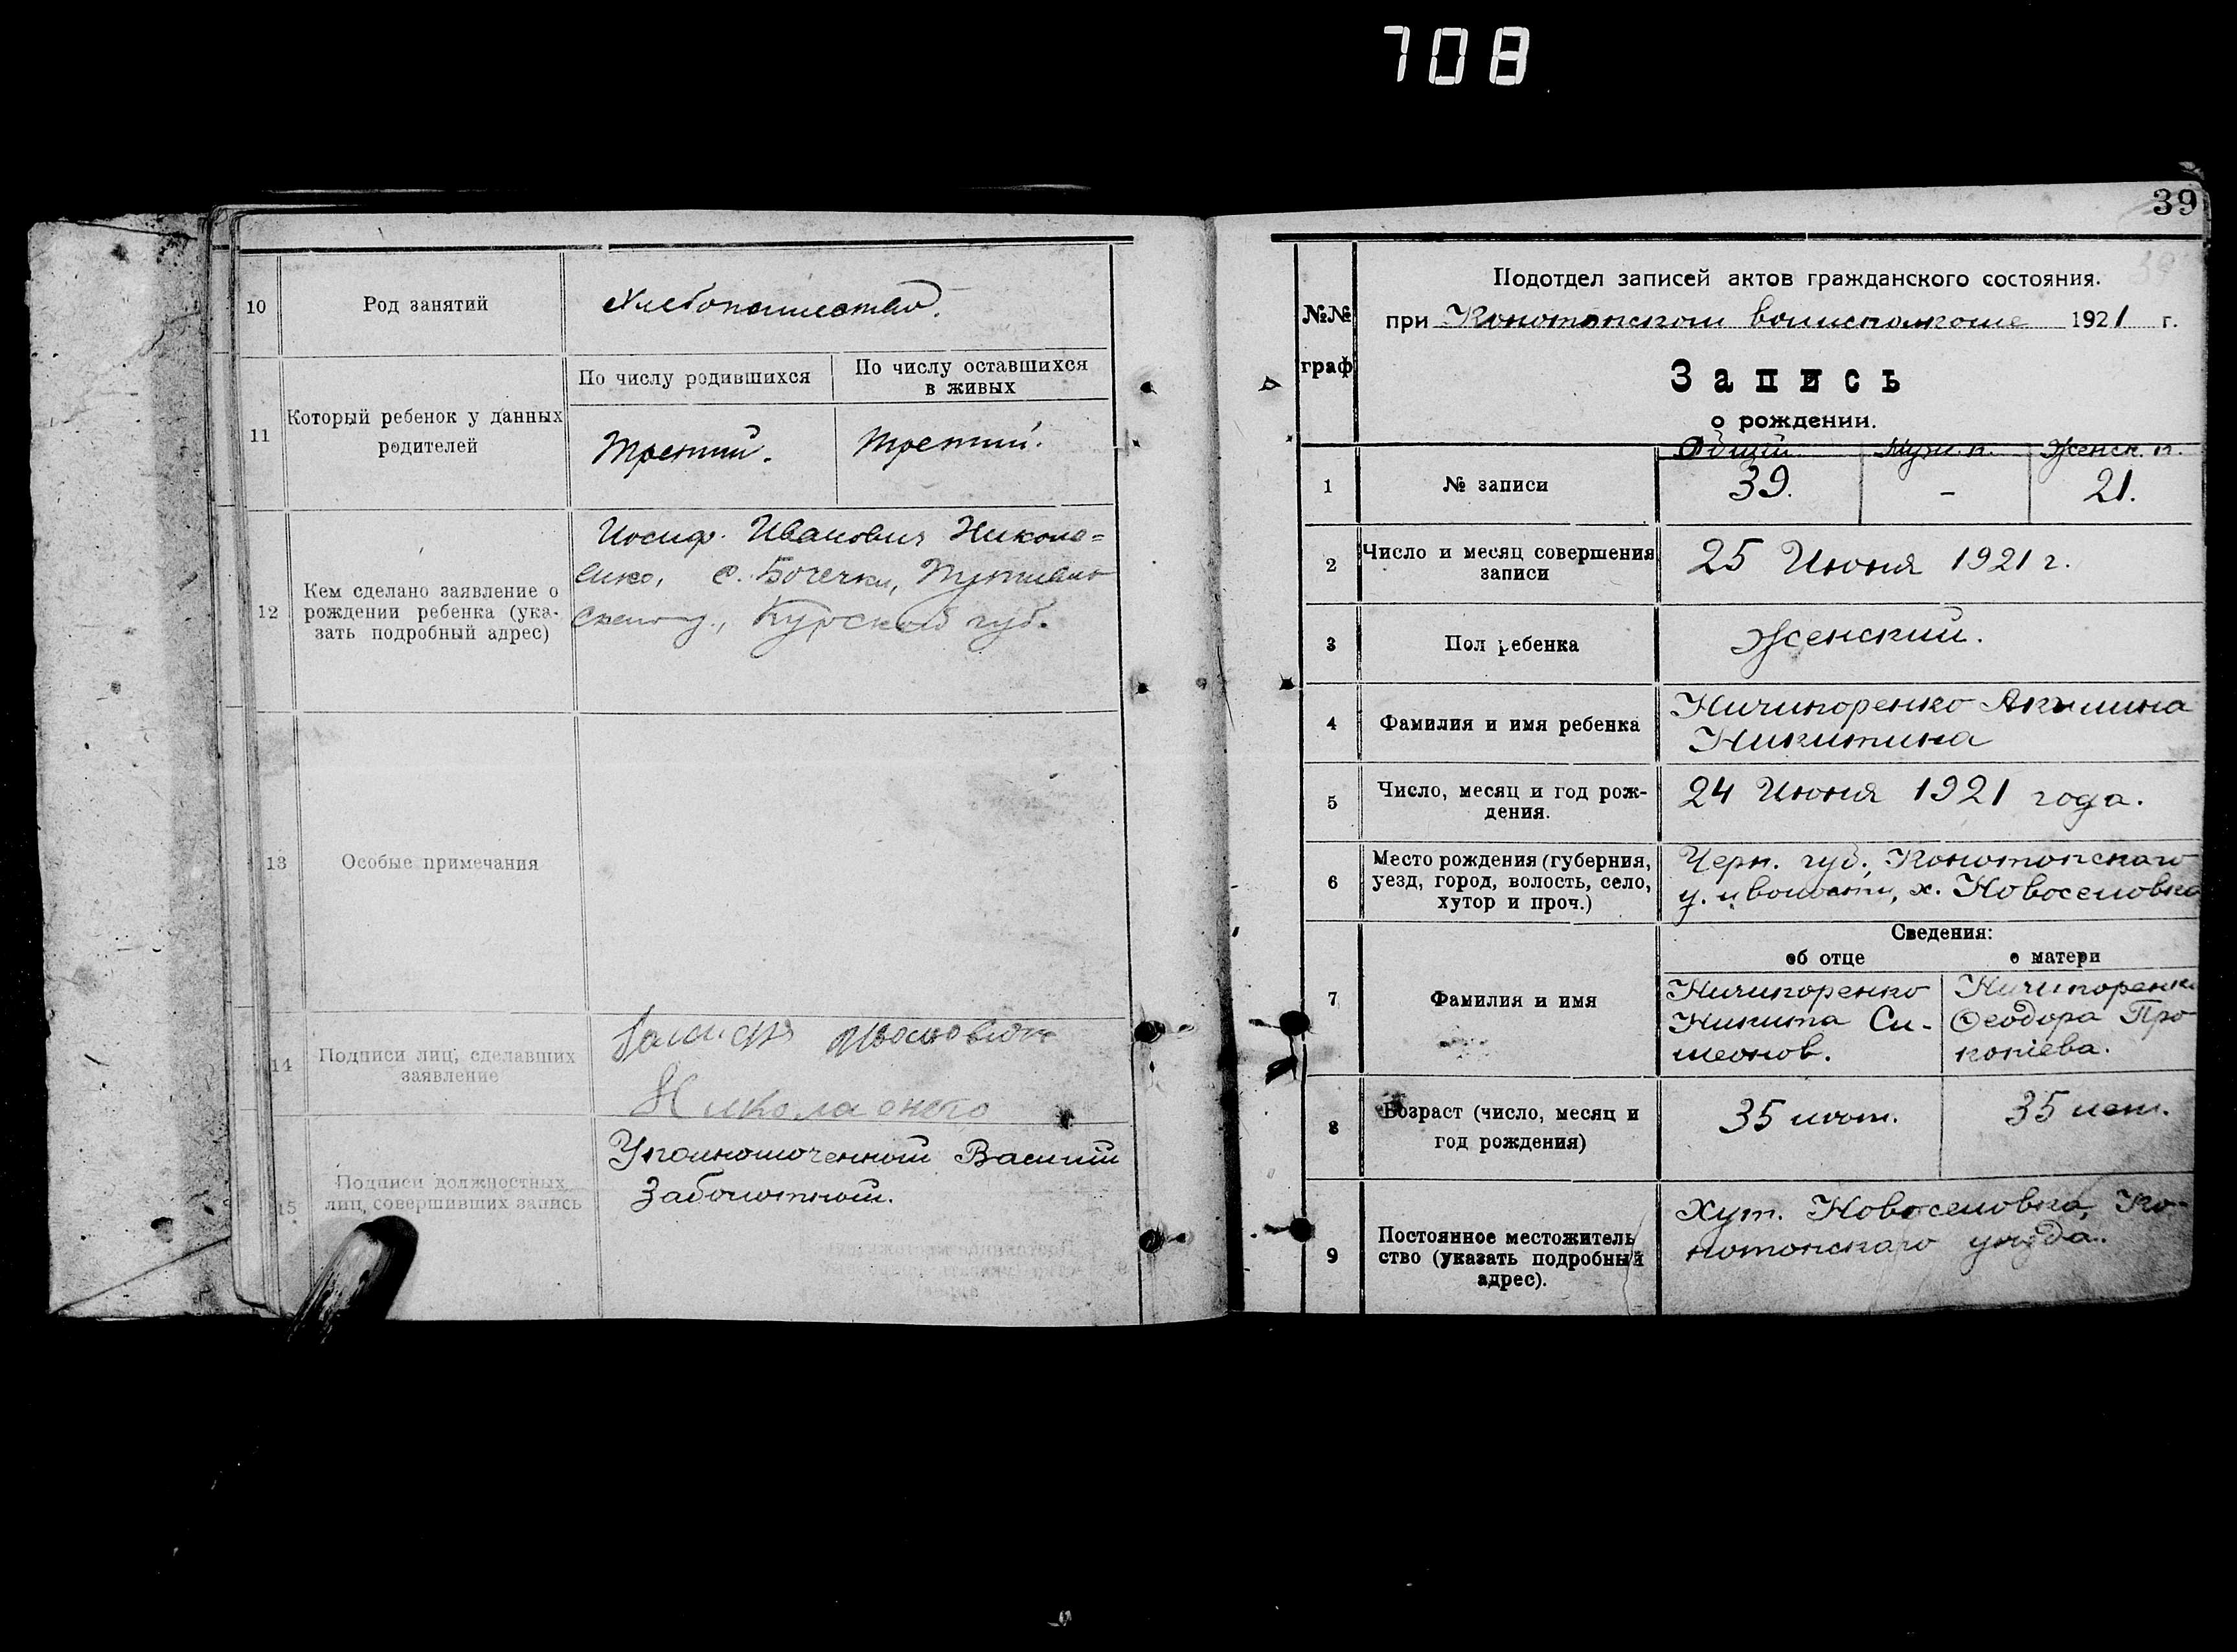 708
10
Род занятий
Хлебопашество.
11
Который ребенок у данных
родителей
По числу родившихся
По числу оставшихся
в живых
Третий.
Третий.
12
Кем сделано заявление о
рождении ребенка (ука-
зать подробный адрес)
Иосиф. Иванович Никола=
енко, с. Бочечки, Путивль
ского у., Курской губ.
13
Особые примечания
14
Подписи лиц, сделавших
заявление
Николаенко
15
Подписи должностных
лиц, совершивших запись
Уполномоченный Василий
Заболотный.
39
39
№№
граф
Подотдел записей актов гражданского состояния.
при Конотопском волисполкоме 1921 г.
Запись
о рождении.
1
№ записи
Общий Муж. п. Женск. п.
39. - 21.
2
Число и месяц совершения
записи
25 Июня 1921 г.
3
Пол ребенка
Женский.
4
Фамилия и имя ребенка
Ничипоренко Акилина
Никитина
5
Число, месяц и год рож-
дения.
24 Июня 1921 года.
6
Место рождения (губерния,
уезд, город, волость, село,
хутор и проч.)
Черн. губ., Конотопскаго
у. и волости, х. Новоселовка
Сведения:
об отце
о матери
7
Фамилия и имя
Ничипоренко
Никита Си-
меонов.
Ничипоренко
Ѳеодора Про
копіева.
8
Возраст (число, месяц и
год рождения)
35 лет.
35 лет.
9
Постоянное местожитель
ство (указать подробный
адрес).
Хут. Новоселовка, Ко-
нотопскаго уезда.